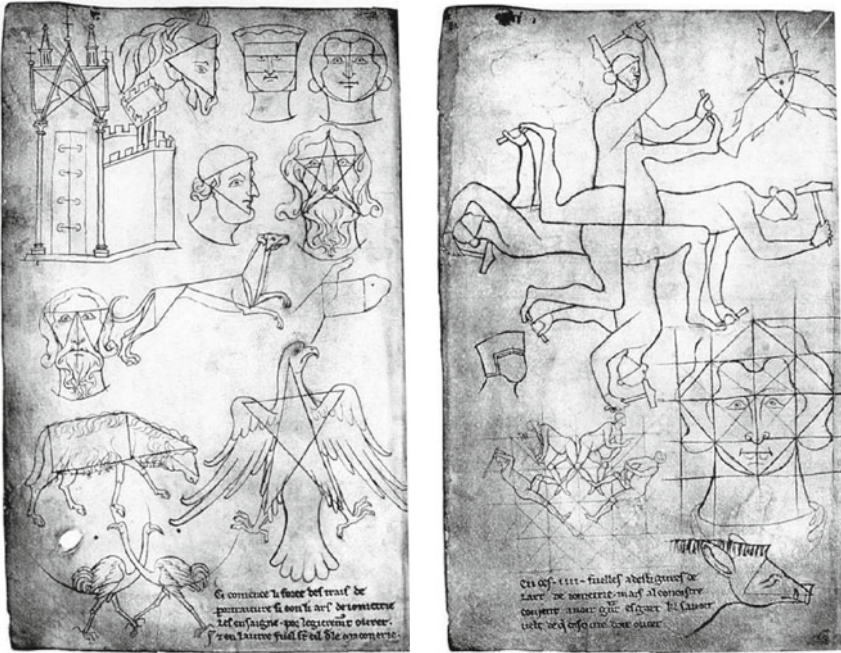 Ci comence li force des trais de
portraiture si con li ars de iometrie
les ensaigne por legieremt ovrer.
en lautre fuel st cil dle maconerie.
En ces .IIII. fuelles a des figures de
lart de iometrie. mais al conoistre
covient avoir esgart ki savoir
velt de doit ovrer